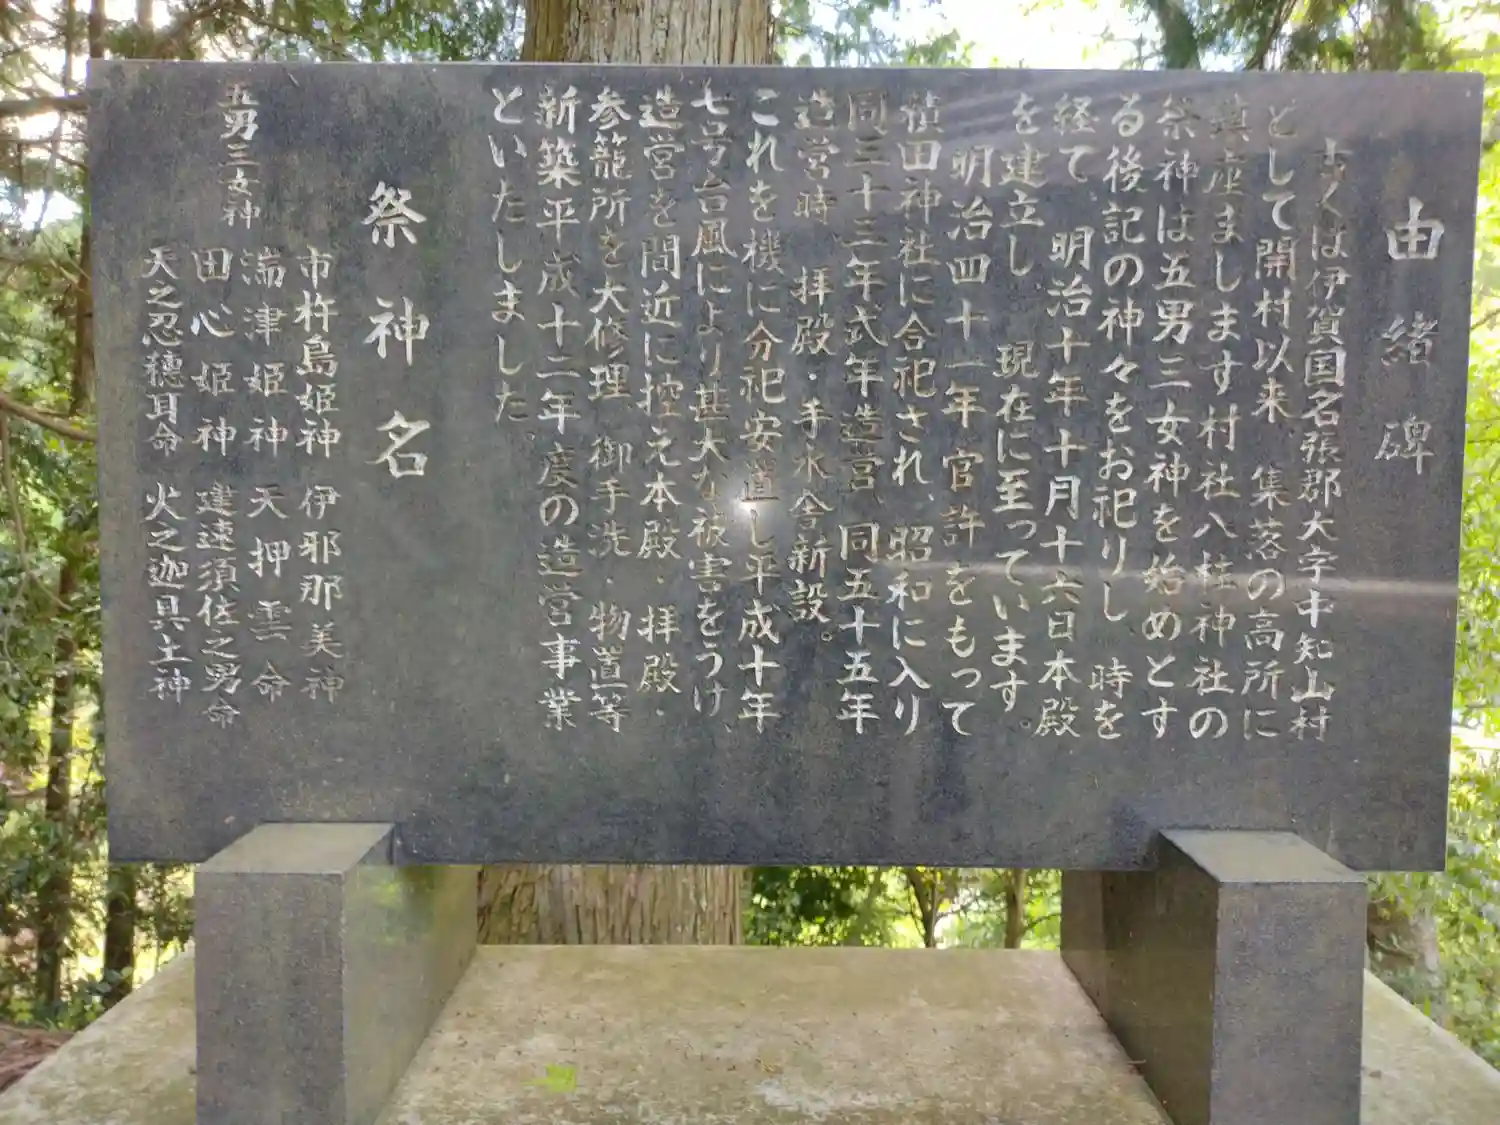 由緒碑
古くは伊賀国名張郡大字中知山村
として開村以来、集落の高所に
鎮座まします村社八柱神社の
祭神は五男三女神を始めとす
る後記の神々をお祀りし、時を
経て、明治十年十月十六日本殿
を建立し、現在に至っています。
明治四十一年官許をもって
積田神社に合祀され、昭和に入り
同三十三年式年造営、同五十五年
造営時、拝殿・手水舎新設。
これを機に分祀安置し平成十年
七号台風により甚大な被害をうけ、
造営を間近に控え本殿・拝殿・
参籠所を大修理、御手洗・物置等
新築平成十二年度の造営事業
といたしました。
祭神名
市杵島姫神 伊邪那美神
湍津姫神 天押雲命
五男三女神 田心姫神 建速須佐之男命
天之忍穂耳命 火之迦具土神